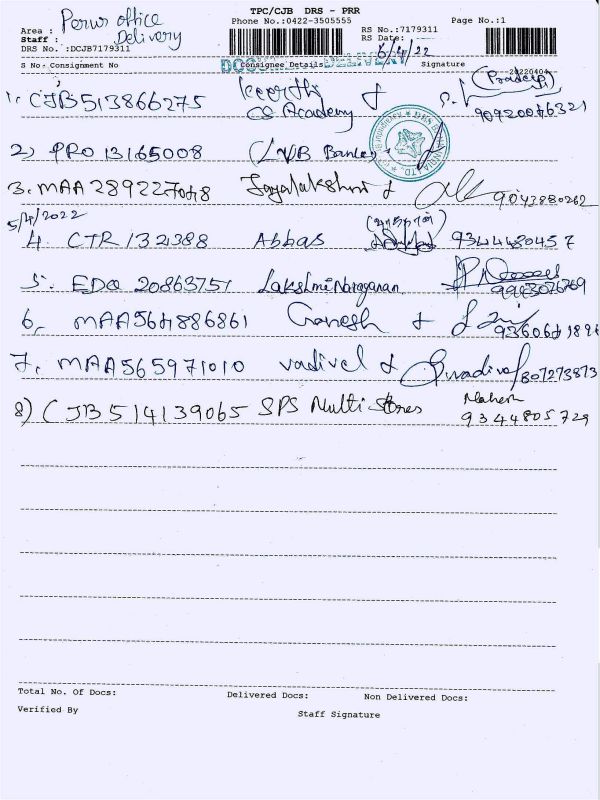 TPC/CJB DRS - PRR
Area : Perur office
Phone No.:0422-3505555
RS No.:7179311
Page No.:1
Staff : Delivery
RS Date: 6/4/22
DRS No. :DCJB7179311
DOCUMENT DELIVERY
S No. Consignment No Consignee Details Signature
20220404
1. CJB513866275 Keerthi CS Academy (Pradeep) 9092006321
2) PRO 13165008 (LVB Bank)
3. MAA 289227048 Jayalakshmi 9043880262
5/4/2022
4. CTR 132388 Abbas 9344480457
5. EDQ 20863751 Lakshmi Narayanan 9943076769
6. MAA564886861 Ganesh
7. MAA565971010 vadivel 807273873
8) CJB514139065 SPS Multi Stores Mahesh 9344805729
Total No. Of Docs: Delivered Docs: Non Delivered Docs:
Verified By Staff Signature